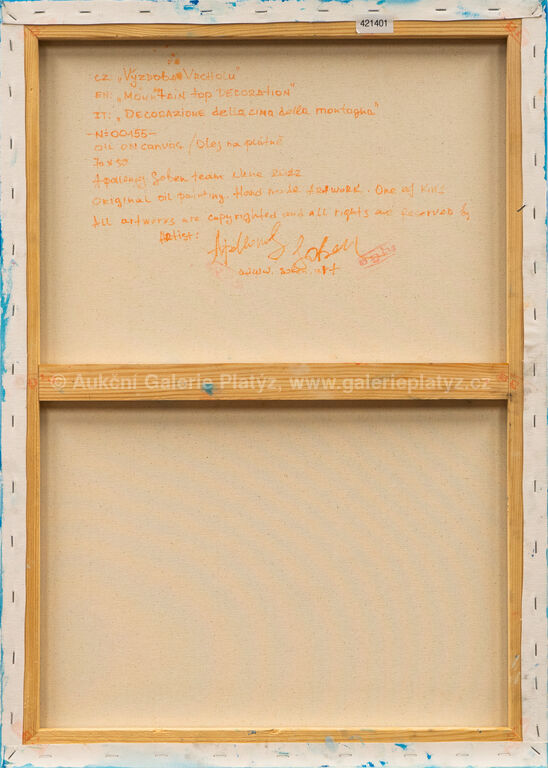 421401
CZ „Výzdoba Vrcholu"
EN: „Mountain top DECORATION"
IT: „DECORAZIONE della cima della montagna"
-N:00155-
OIL ON canvas. / Olej na plátně
70x50
Apalenoy Soben team 2022
Original oil painting. Hand made ARTWORK. One of Kind
All artworks are copyrighted and all rights are reserved by
Artist:
© Aukční Galerie Platýz, www.galerieplatyz.cz